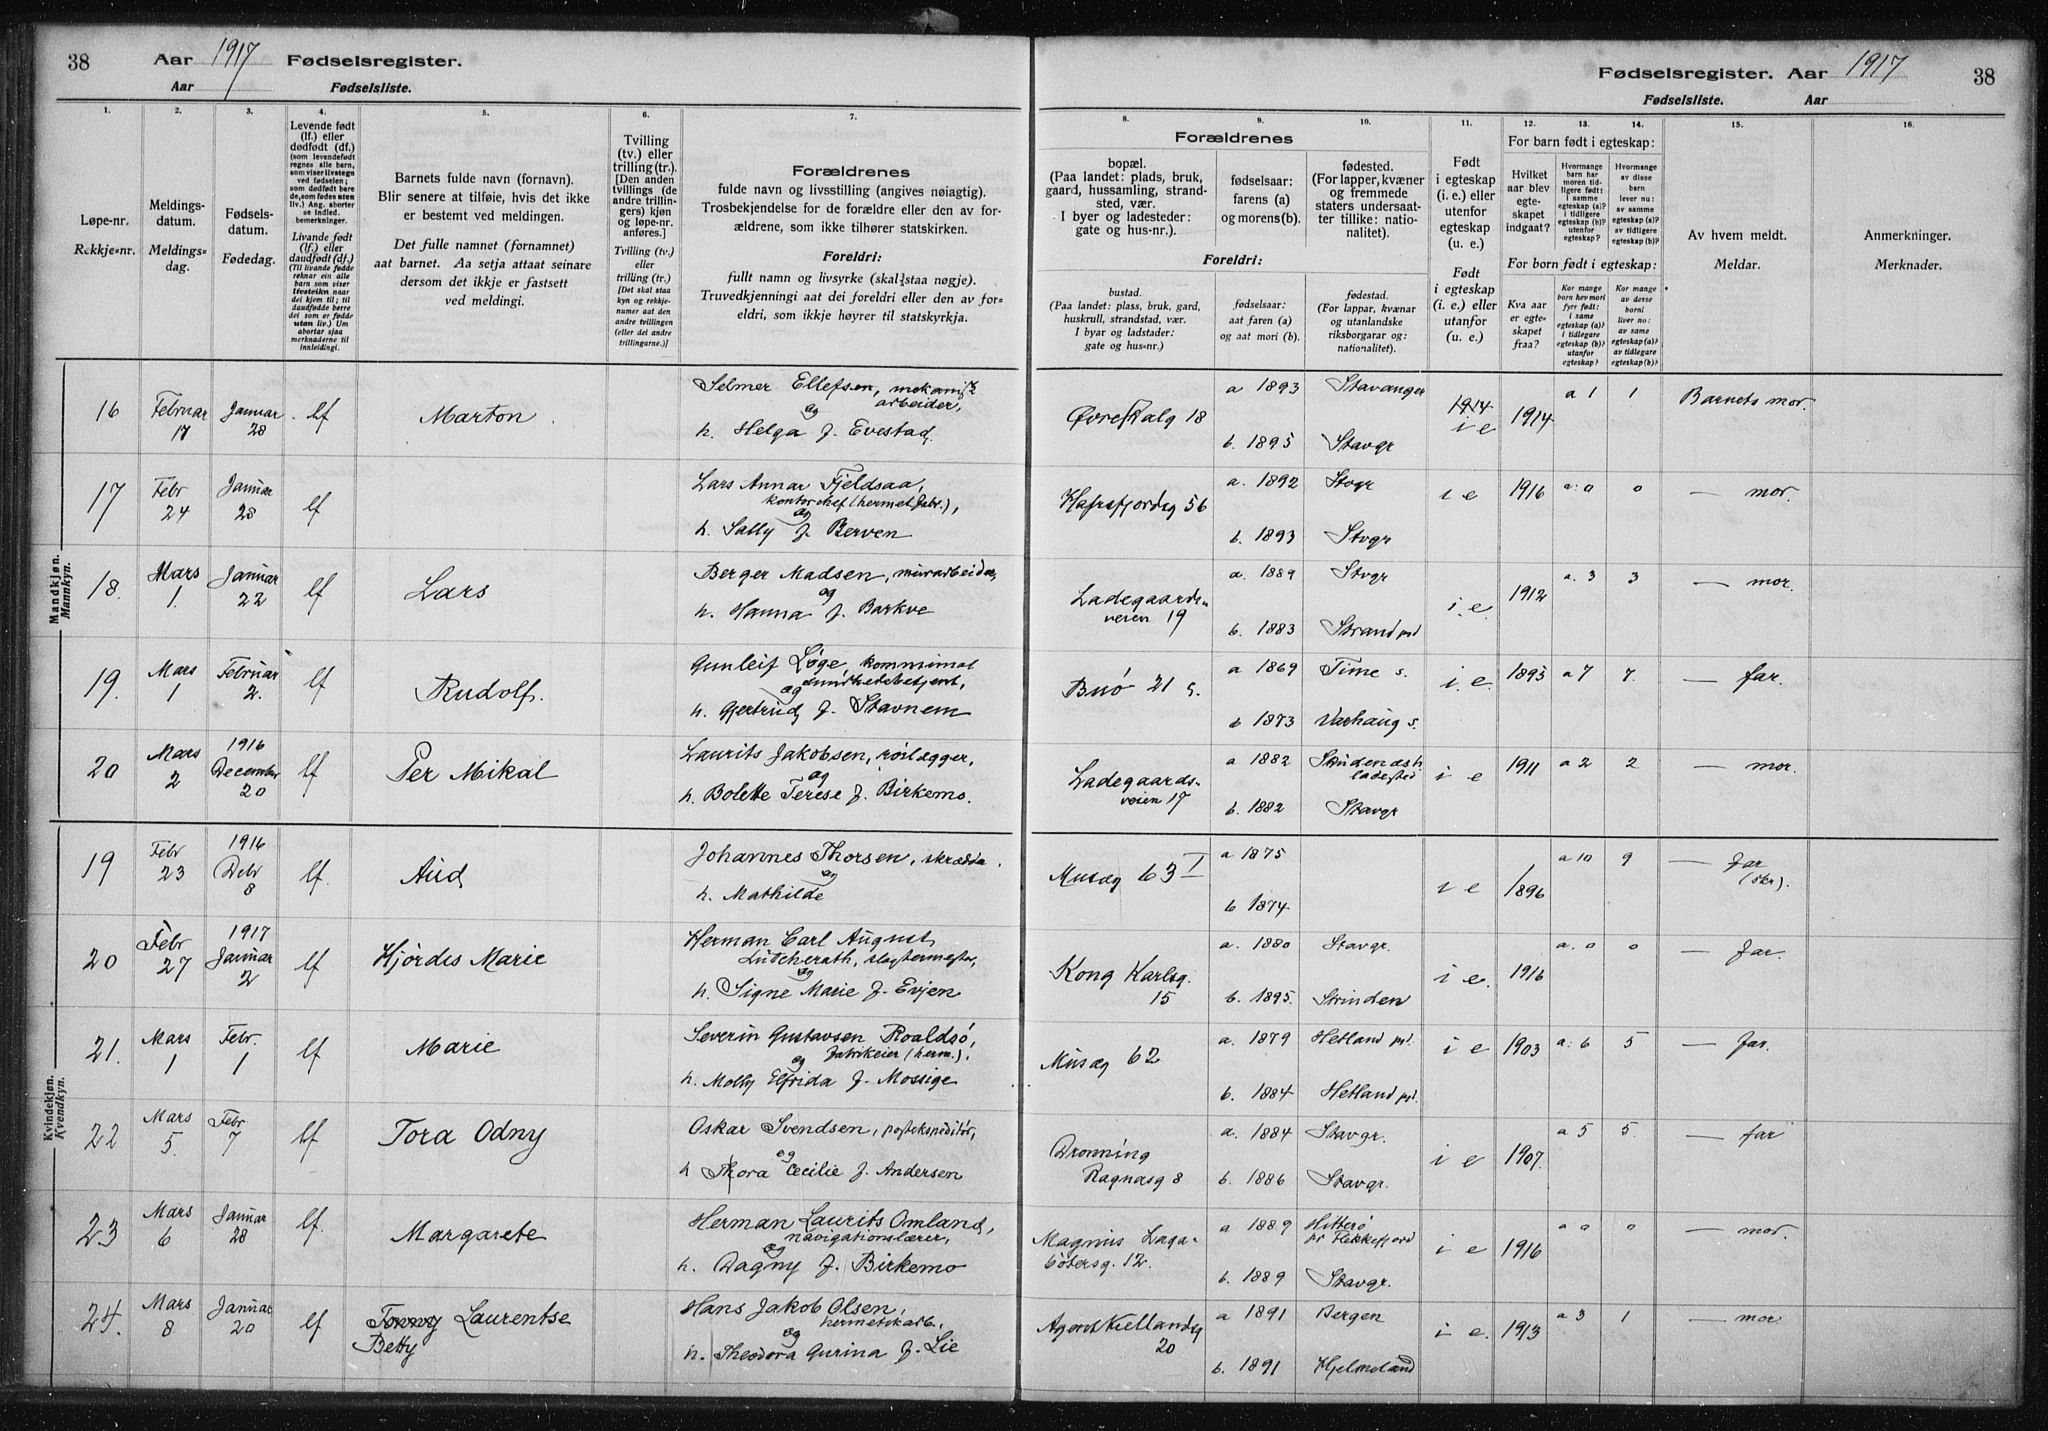 38 Aar 1917 Fødselsregister.
Aar Fødselsliste.
Fødselsregister. Aar 1917 38
Fødselsliste. Aar
1. 2. 3. 4. 5. 6. 7.
8. 9. 10. 11. 12. 13. 14. 15. 16.
Løpe-nr.
Rekkje-nr.
Meldings-
datum.
Meldings-
dag.
Fødsels-
datum.
Fødedag.
Levende født
(lf.) eller
dødfødt (df.)
(som levendefødt
regnes alle barn,
som viser livstegn
ved fødselen;
som dødfødt bare
de, som fødes uten
liv.) Ang. aborter
se indled.
bemerkninger.
Livande født
(lf.) eller
daudfødt (df.)
(Til livande fødde
reknar ein alle
barn som viser
livsteikn naar
dei kjem til; til
daudfødde berre
dei som er fødde
utan liv.) Um
abortar sjaa
merknaderne til
innleidingi.
Barnets fulde navn (fornavn).
Blir senere at tilføie, hvis det ikke
er bestemt ved meldingen.
Det fulle namnet (fornamnet)
aat barnet. Aa setja attaat seinare
dersom det ikkje er fastsett
ved meldingi.
Tvilling
(tv.) eller
trilling (tr.).
[Den anden
tvillings (de
andre trillin-
gers) kjøn
og løpe-nr.
anføres.]
Tvilling (tv.)
eller
trilling (tr.)
[Det skal staa
kyn og rekkje-
numer aat den
andre tvillingen
(eller dei andre
trillingarne.)]
Forældrenes
fulde navn og livsstilling (angives nøiagtig).
Trosbekjendelse for de forældre eller den av for-
ældrene, som ikke tilhører statskirken.
Foreldri:
fullt namn og livsyrke (skal staa nøgje).
Truvedkjenningi aat dei foreldri eller den av for-
eldri, som ikkje høyrer til statskyrkja.
Forældrenes
bopæl.
(Paa landet: plads, bruk,
gaard, hussamling, strand-
sted, vær.
I byer og ladesteder:
gate og hus-nr.).
fødselsaar:
farens (a)
og morens(b).
fødested.
(For lapper, kvæner
og fremmede
staters undersaat-
ter tillike: natio-
nalitet).
Foreldri:
bustad.
(Paa landet: plass, bruk, gard,
huskrull, strandstad, vær.
I byar og ladstader:
gate og hus-nr.)
fødselsaar:
aat faren (a)
og aat mori (b).
fødestad.
(For lappar, kvænar
og utanlandske
riksborgarar og:
nationalitet).
Født
i egteskap
(i. e.) eller
utenfor
egteskap
(u. e.)
Født
i egteskap
(i. e.) eller
utanfor
(u. e.)
For barn født i egteskap:
Hvilket
aar blev
egte-
skapet
indgaat?
Hvormange
barn har
moren tid-
ligere født:
i samme
egteskap (a)?
i tidligere
egteskap (b)?
utenfor
egteskap?
Hvormange
av disse
barn
lever nu:
av samme
egteskap (a)?
av tidligere
egteskap (b)?
For born født i egteskap:
Kva aar
er egte-
skapet
fraa?
Kor mange
born hev mori
fyrr født:
i same
egteskap (a)?
i tidlegare
egteskap (b)?
utanfor
egteskap?
Kor mange
av desse
borni
liver no:
av same
egteskap (a)?
av tidlegare
egteskap (b)?
Av hvem meldt.
Meldar.
Anmerkninger.
Merknader.
Mandkjøn.
Mannkyn.
16 Februar 17 Januar 28 lf Marton
Selmer Ellefsen, mekanisk
arbeider,
og
h. Helga f. Evestad.
Øvre Dalg 18 a 1893 Stavanger 1914 i e 1914 a 1 1 Barnets mor.
b. 1895 Stavgr
17 Febr 24 Januar 28 lf
Lars Annar Fjeldsaa,
kontorchef (hermet. fabr.),
og
h. Sally f. Berven
Hafrsfjordsg 56 a. 1892 Stvgr i e 1916 a: 0 0 — mor.
b. 1893 Stvgr
18. Mars 1. Januar 22 lf Lars
Berger Madsen, murarbeider,
og
h. Hanna f. Barkve
Ladegaards-
veien 19 a. 1889 Stvgr i. e. 1912 a. 3 3 — mor.
b. 1883 Strand pd
19. Mars 1 Februar 2. lf Rudolf.
Gunleif Løge, kommunal
sundhedsbetjent,
og
h. Gjertrud f. Stavnem
Buø 21 a 1869 Time s. i. e. 1893 a 7 7. — far.
b 1873 Varhaug s.
20 Mars 2 1916 December 20 lf Per Mikal
Laurits Jakobsen, rørlægger,
og
h. Bolette Terese f. Birkemo.
Ladegaards-
veien 17 a 1882 ladested i e 1911 a 2 2 — mor.
b. 1882 Stavgr
Kvindekjøn.
Kvendkyn.
19 Febr 23 1916 Debr 8 lf. Aud
Johannes Thorsen, skrædder.
og
h. Mathilde
Musæg 63 I a 1875 i e 1896 a 10 9 — far
(skr).
b 1874
20 Febr 27 1917 Januar 2 lf Hjørdis Marie
Herman Carl August
Lütcherath, slagtermester,
og
h. Signe Marie f. Evjen
Kong Karlsg.
15 a. 1880 Stavgr. i e. 1916 a. 0 0 — far.
b. 1895. Strinden
21. Mars 1 Febr. 1 lf Marie
Severin Gustavsen Roaldsø,
fabrikeier (herm.).
og
h. Molly Elfrida f. Mossige
Musæg 62 a. 1879 Hetland pd. i e 1903 a: 6 5 — far.
b. 1884 Hetland pd.
22 Mars 5. Febr 7 lf Tora Odny
Oskar Svendsen, postekspeditør,
og
h Thora Cecilie f. Andersen
Dronning
Ragnasg 8 a. 1884 Stavgr. i e 1907. a 5 5. — far
b. 1886 Stavgr.
23 Mars 6 Januar 28 lf. Margarete
Herman Laurits Omland,
navigationslærer,
og
h. Dagny f. Birkemo
Magnus Laga-
bøtersg. 12. a 1889 Hitterø
pr Flekkefjord i e 1916 a 0 0 — mor.
b. 1889 Stavgr.
24. Mars 8 Januar 20 lf Tonny Laurentse
Betty
Hans Jakob Olsen,
hermetikarb.
og
h. Theodora Gurina f. Lie
Agent Kiellandsg
20 a 1891 Bergen i e. 1913 a 3 1 — mor
b. 1891 Hjelmeland